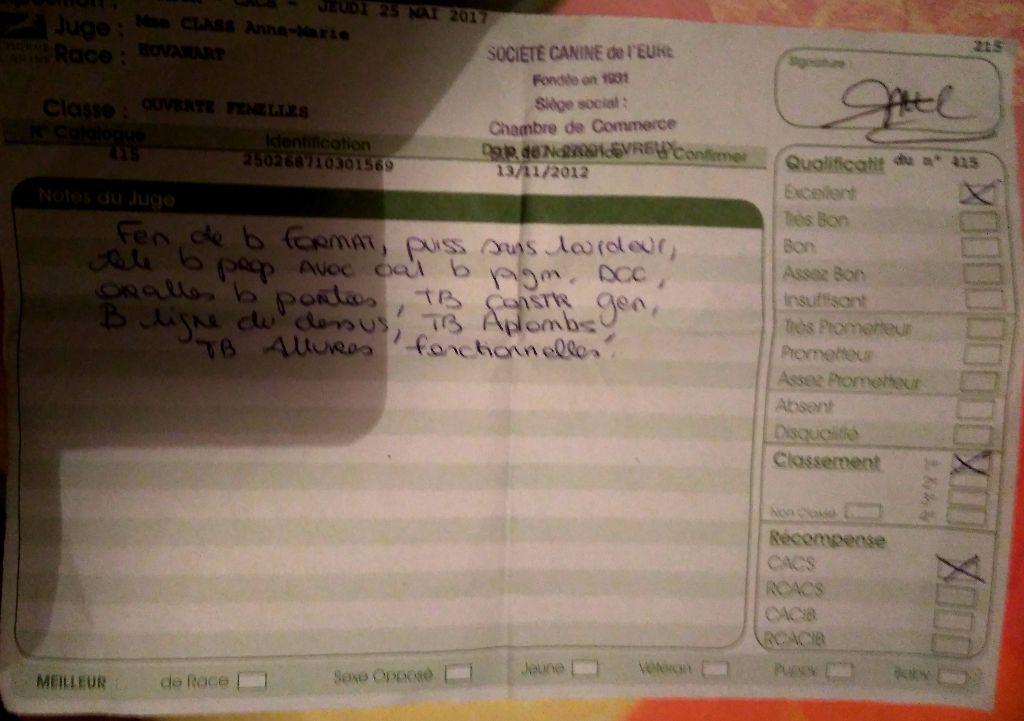 CACS - JEUDI 25 MAI 2017
Juge : Mme CLASS Anne-Marie
Race : HOVAWART
SOCIÉTÉ CANINE de l'EURE
Fondée en 1931
Siège social :
Chambre de Commerce
215
Signature :
Classe : OUVERTE FEMELLES
N° Catalogue Identification à Confirmer
415 250268710301569 13/11/2012
Notes du Juge
Fem de b FORMAT, puiss sans lourdeur,
tete b prop AVOC oeil b pigm.
oreilles b portées, TB CONSTR gen,
B ligne du dessus, TB Aplombs
TB Allures "fonctionnelles".
Qualificatif du n° 415
Excellent
Très Bon
Bon
Assez Bon
Insuffisant
Très Prometteur
Prometteur
Assez Prometteur
Absent
Disqualifié
Classement
1er
2e
3e
4e
Non Classé
Récompense
CACS
RCACS
CACIB
RCACIB
MEILLEUR : de Race Sexe Opposé Jeune Vétéran Puppy Baby